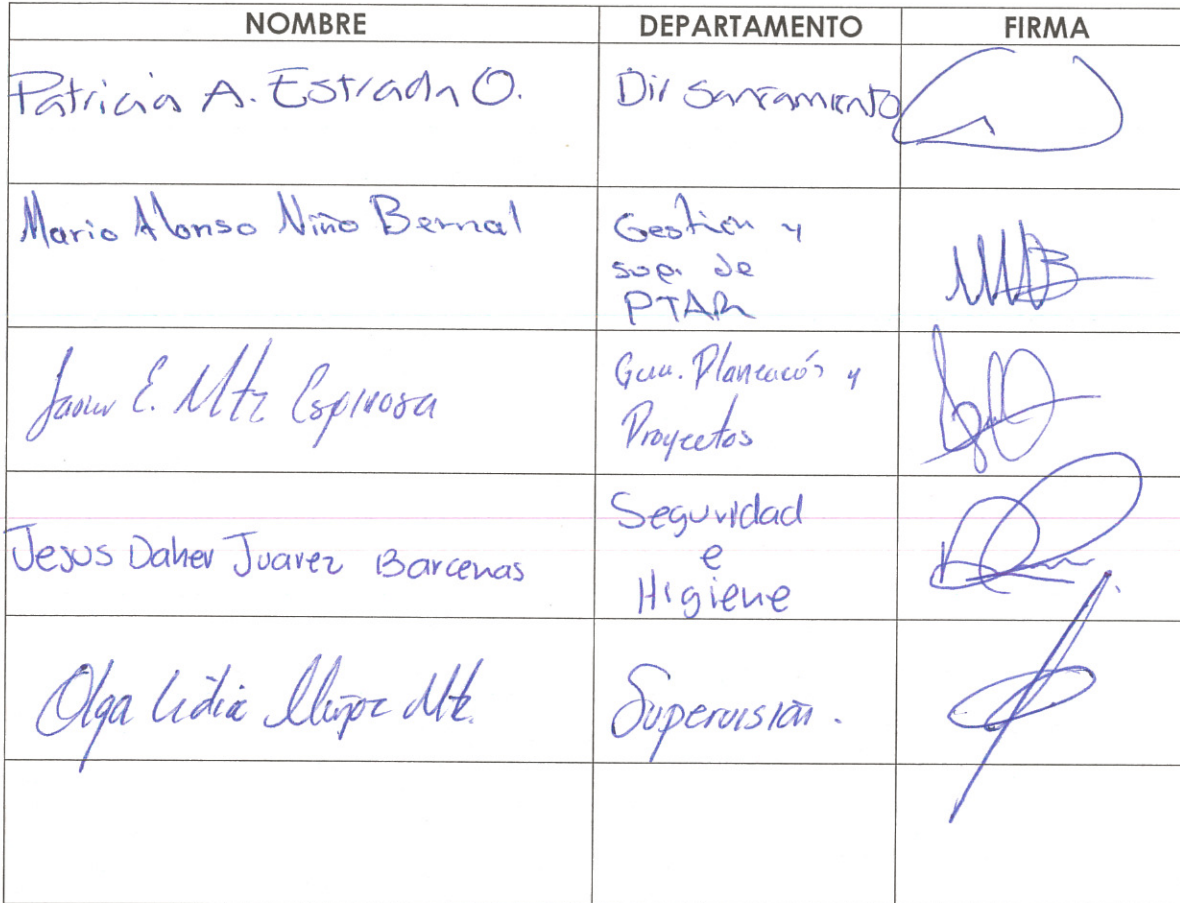 NOMBRE DEPARTAMENTO FIRMA
Patricia A. Estrada O. Dir Saneamiento
Mario Alonso Niño Bernal Gestión y
sup. de
PTAR
Javier E. Mtz Espinosa Planeación y
Proyectos
Jesus Daher Juarez Barcenas Seguridad
e
Higiene
Olga Lidia Muñoz Mtz. Supervisión.